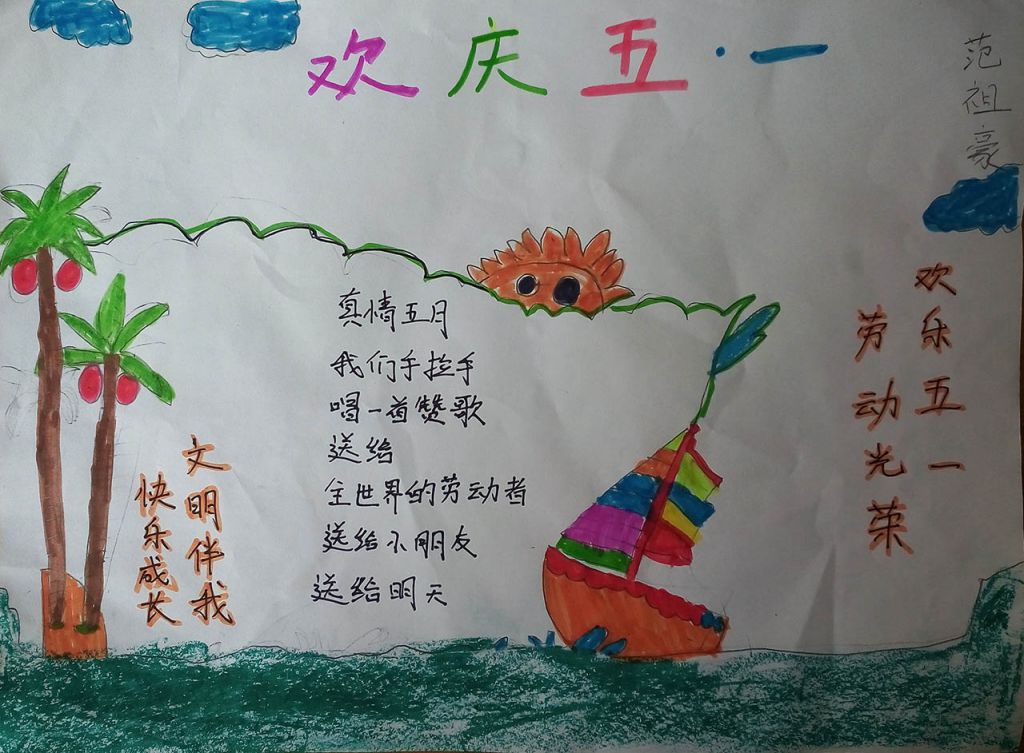 欢庆五·一
范祖豪
真情五月
我们手拉手
唱一首赞歌
送给
全世界的劳动者
送给小朋友
送给明天
欢乐五一
劳动光荣
文明伴我
快乐成长